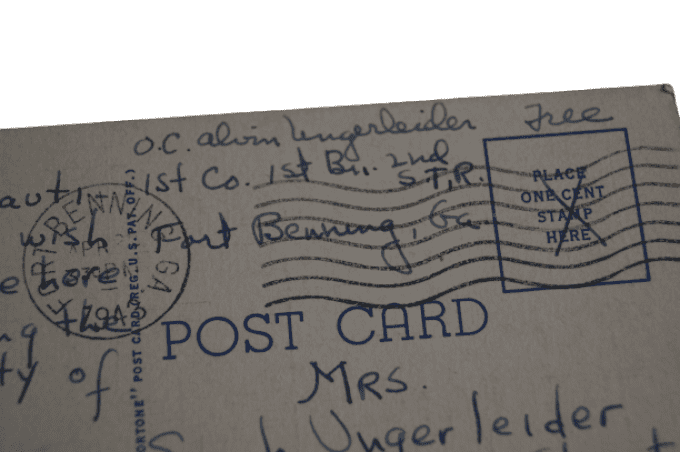 O.C. Alvin Ungerleider Free
1st Co. 1st Bn. 2nd
S.T.R.
Fort Benning, Ga
PLACE
ONE CENT
STAMP
HERE
FORT BENNING GA
POST CARD
MRS.
Ungerleider
POST CARD (REG. U.S. PAT. OFF.)
wish
e here
ng the
ty of